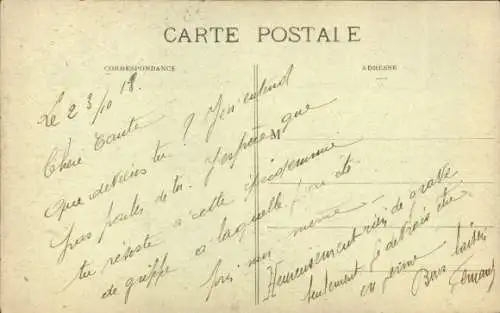 CARTE POSTALE
CORRESPONDANCE
ADRESSE
M
Le 23/10 18.
Chère Tante
Que deviens tu ? J'en'entend
pas parler de toi. J'espère que
tu résiste à cette épidémie
de grippe à laquelle j'ai été
pris moi même.
Heureusement rien de grave
seulement je devrais être
en perme
Bons baisers
Fernand